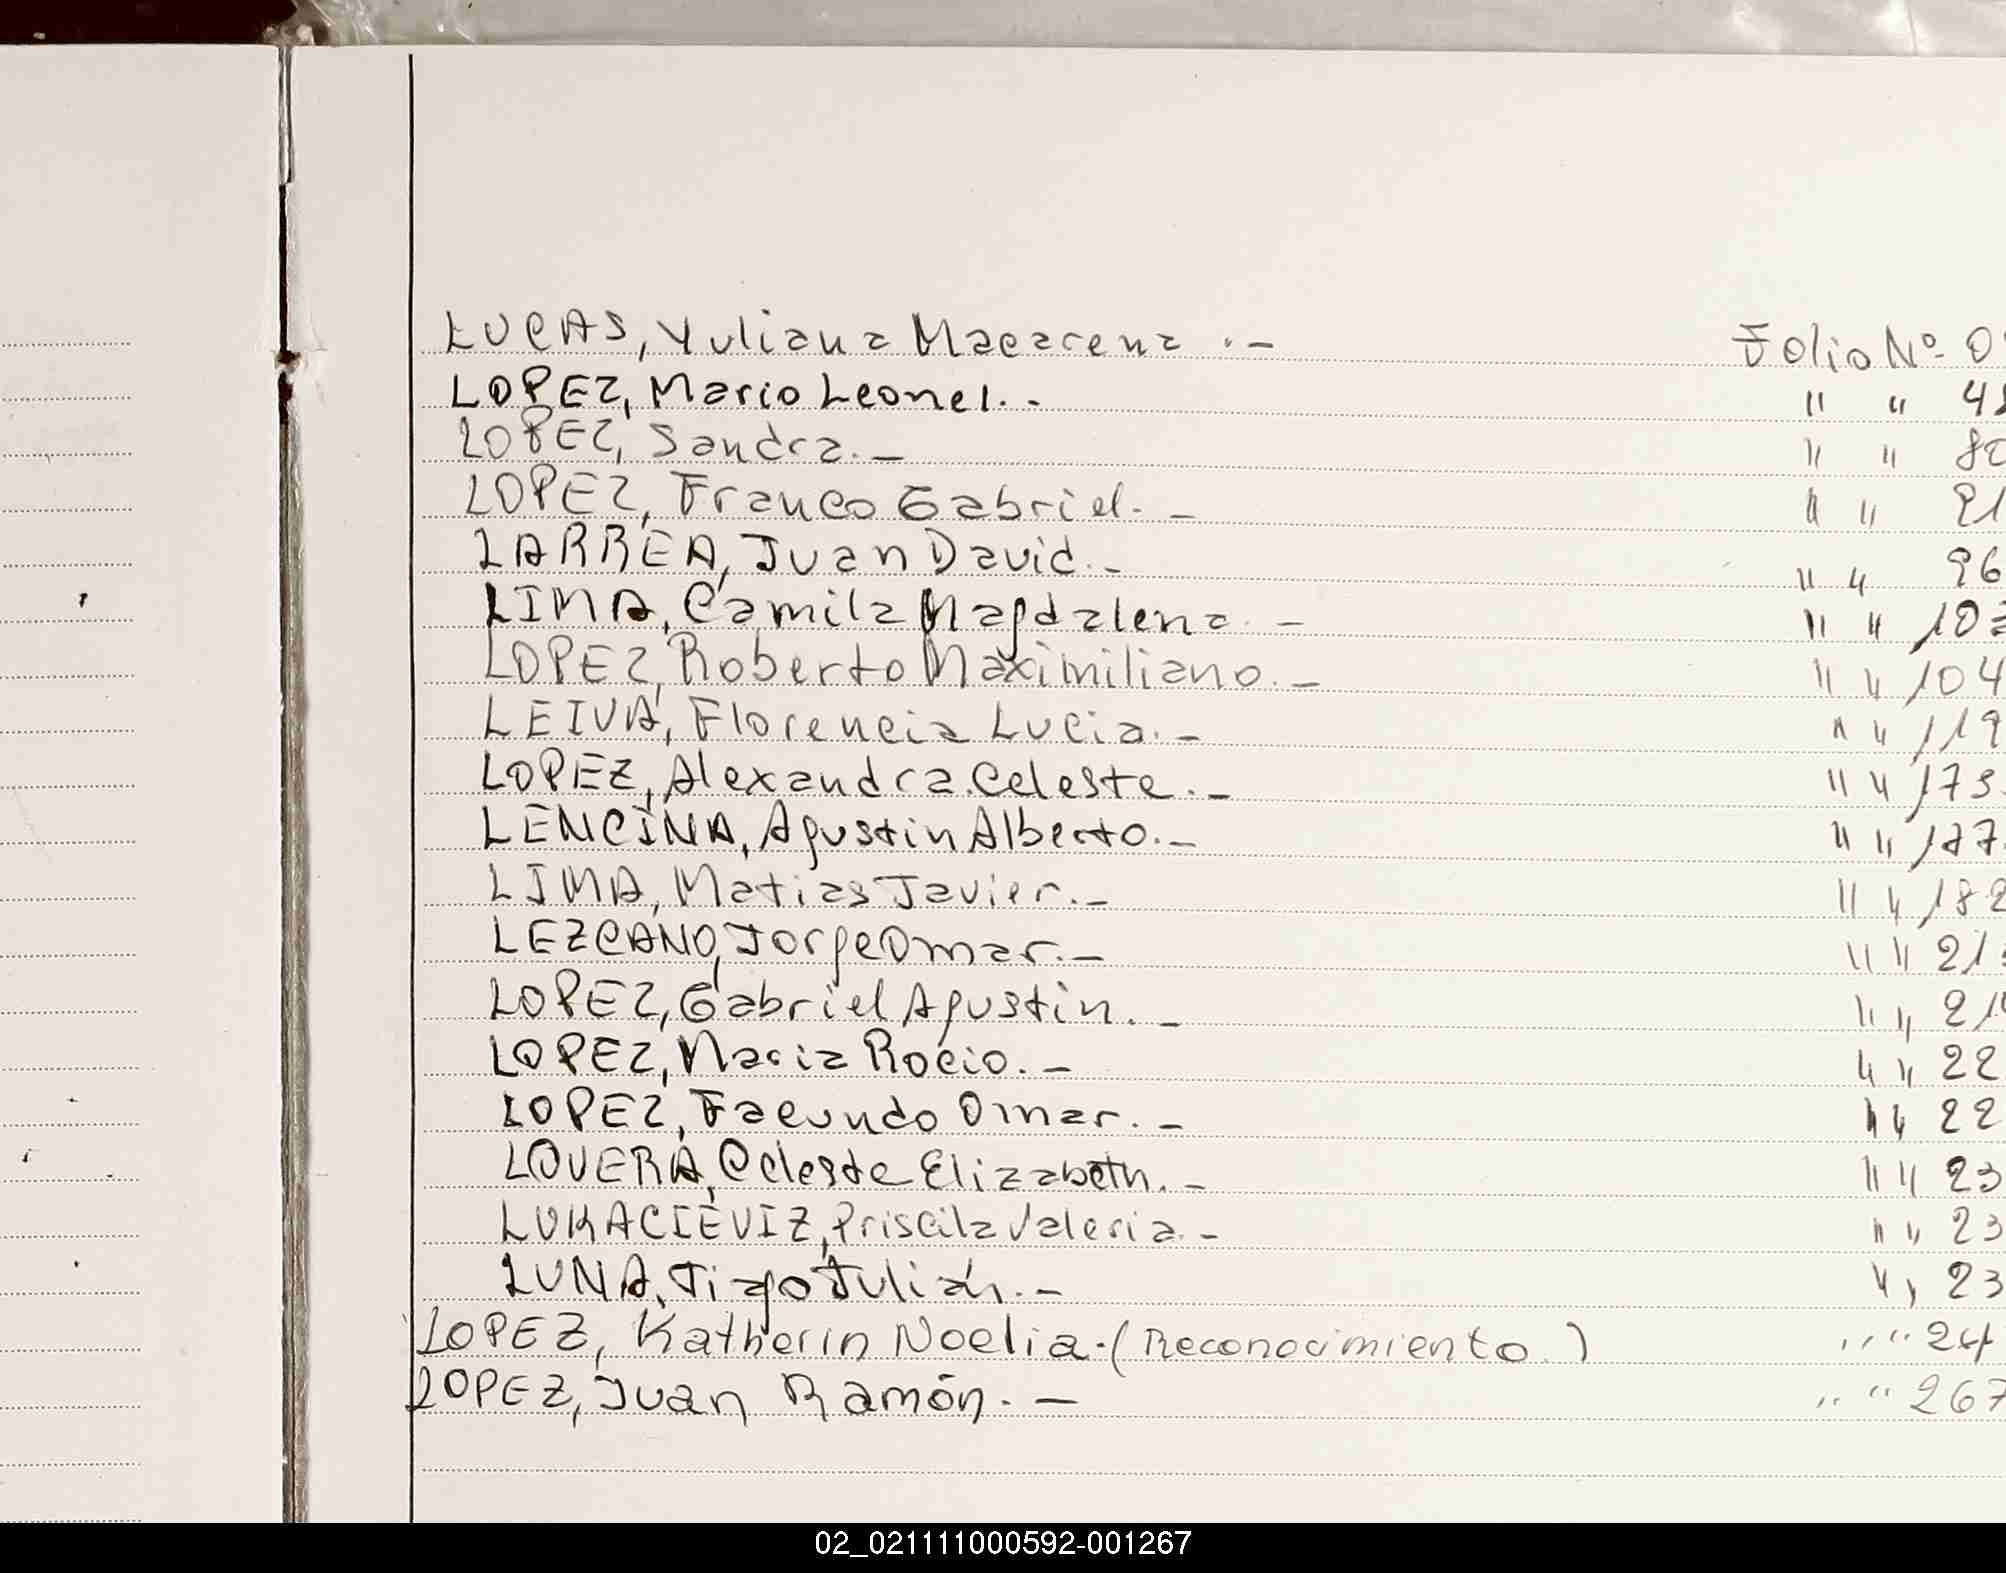 LUCAS, Yuliana Macarena .- Folio Nº 0
LOPEZ, Mario Leonel.- " " 48
LOPEZ, Sandra.- " " 80
LOPEZ, Franco Gabriel.- " " 91
LARREA, Juan David.- " " 96
LIMA, Camila Magdalena.- " " 103
LOPEZ, Roberto Maximiliano.- " " 104
LEIVA, Florencia Lucia.- " " 119
LOPEZ, Alexandra Celeste.- " " 173
LENCINA, Agustin Alberto.- " " 177
LIMA, Matias Javier.- " " 182
LEZCANO, Jorge Omar.- " " 21
LOPEZ, Gabriel Agustin.- " " 21
LOPEZ, Maria Rocio.- " " 22
LOPEZ, Facundo Omar.- " " 22
LOVERA, Celeste Elizabeth.- " " 23
LUKACIEVIZ, Priscila Valeria.- " " 23
LUNA, Tiago Julián.- " " 23
LOPEZ, Katherin Noelia.(Reconocimiento.) " " 24
LOPEZ, Juan Ramón.- " " 267
02_021111000592-001267